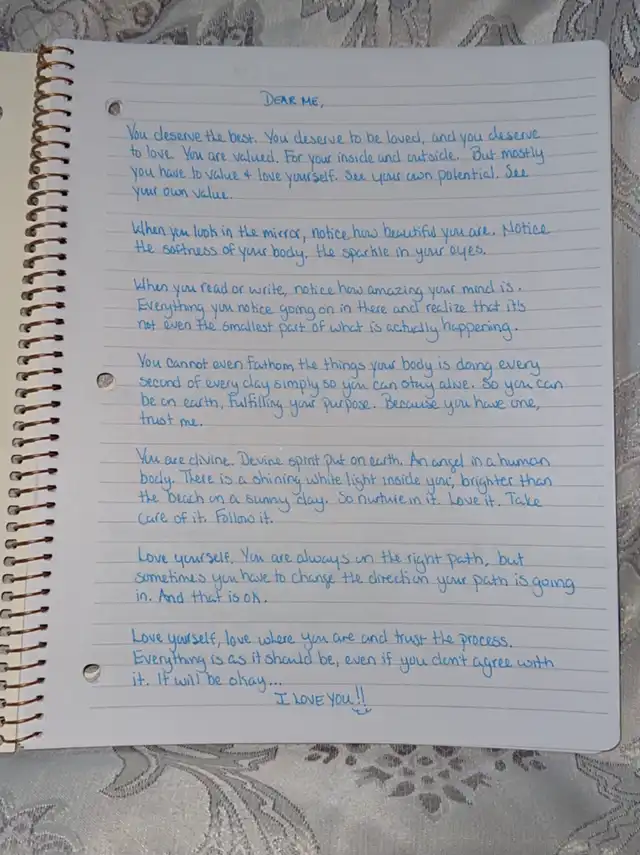 DEAR ME,
You deserve the best. You deserve to be loved, and you deserve
to love. You are valued. For your inside and outside. But mostly
you have to value + love yourself. See your own potential. See
your own value.
When you look in the mirror, notice how beautiful you are. Notice
the softness of your body. the sparkle in your eyes.
When you read or write, notice how amazing your mind is.
Everything you notice going on in there and realize that it's
not even the smallest part of what is actually happening.
You cannot even fathom the things your body is doing every
second of every day simply so you can stay alive. So you can
be on earth, fulfilling your purpose. Because you have one,
trust me.
You are divine. Devine spirit put on earth. An angel in a human
body. There is a shining white light inside you, brighter than
the beach on a sunny day. So nurture in it. Love it. Take
care of it. Follow it.
Love yourself. You are always on the right path, but
sometimes you have to change the direction your path is going
in. And that is ok.
Love yourself, love where you are and trust the process.
Everything is as it should be, even if you don't agree with
it. It will be okay...
I LOVE YOU!!